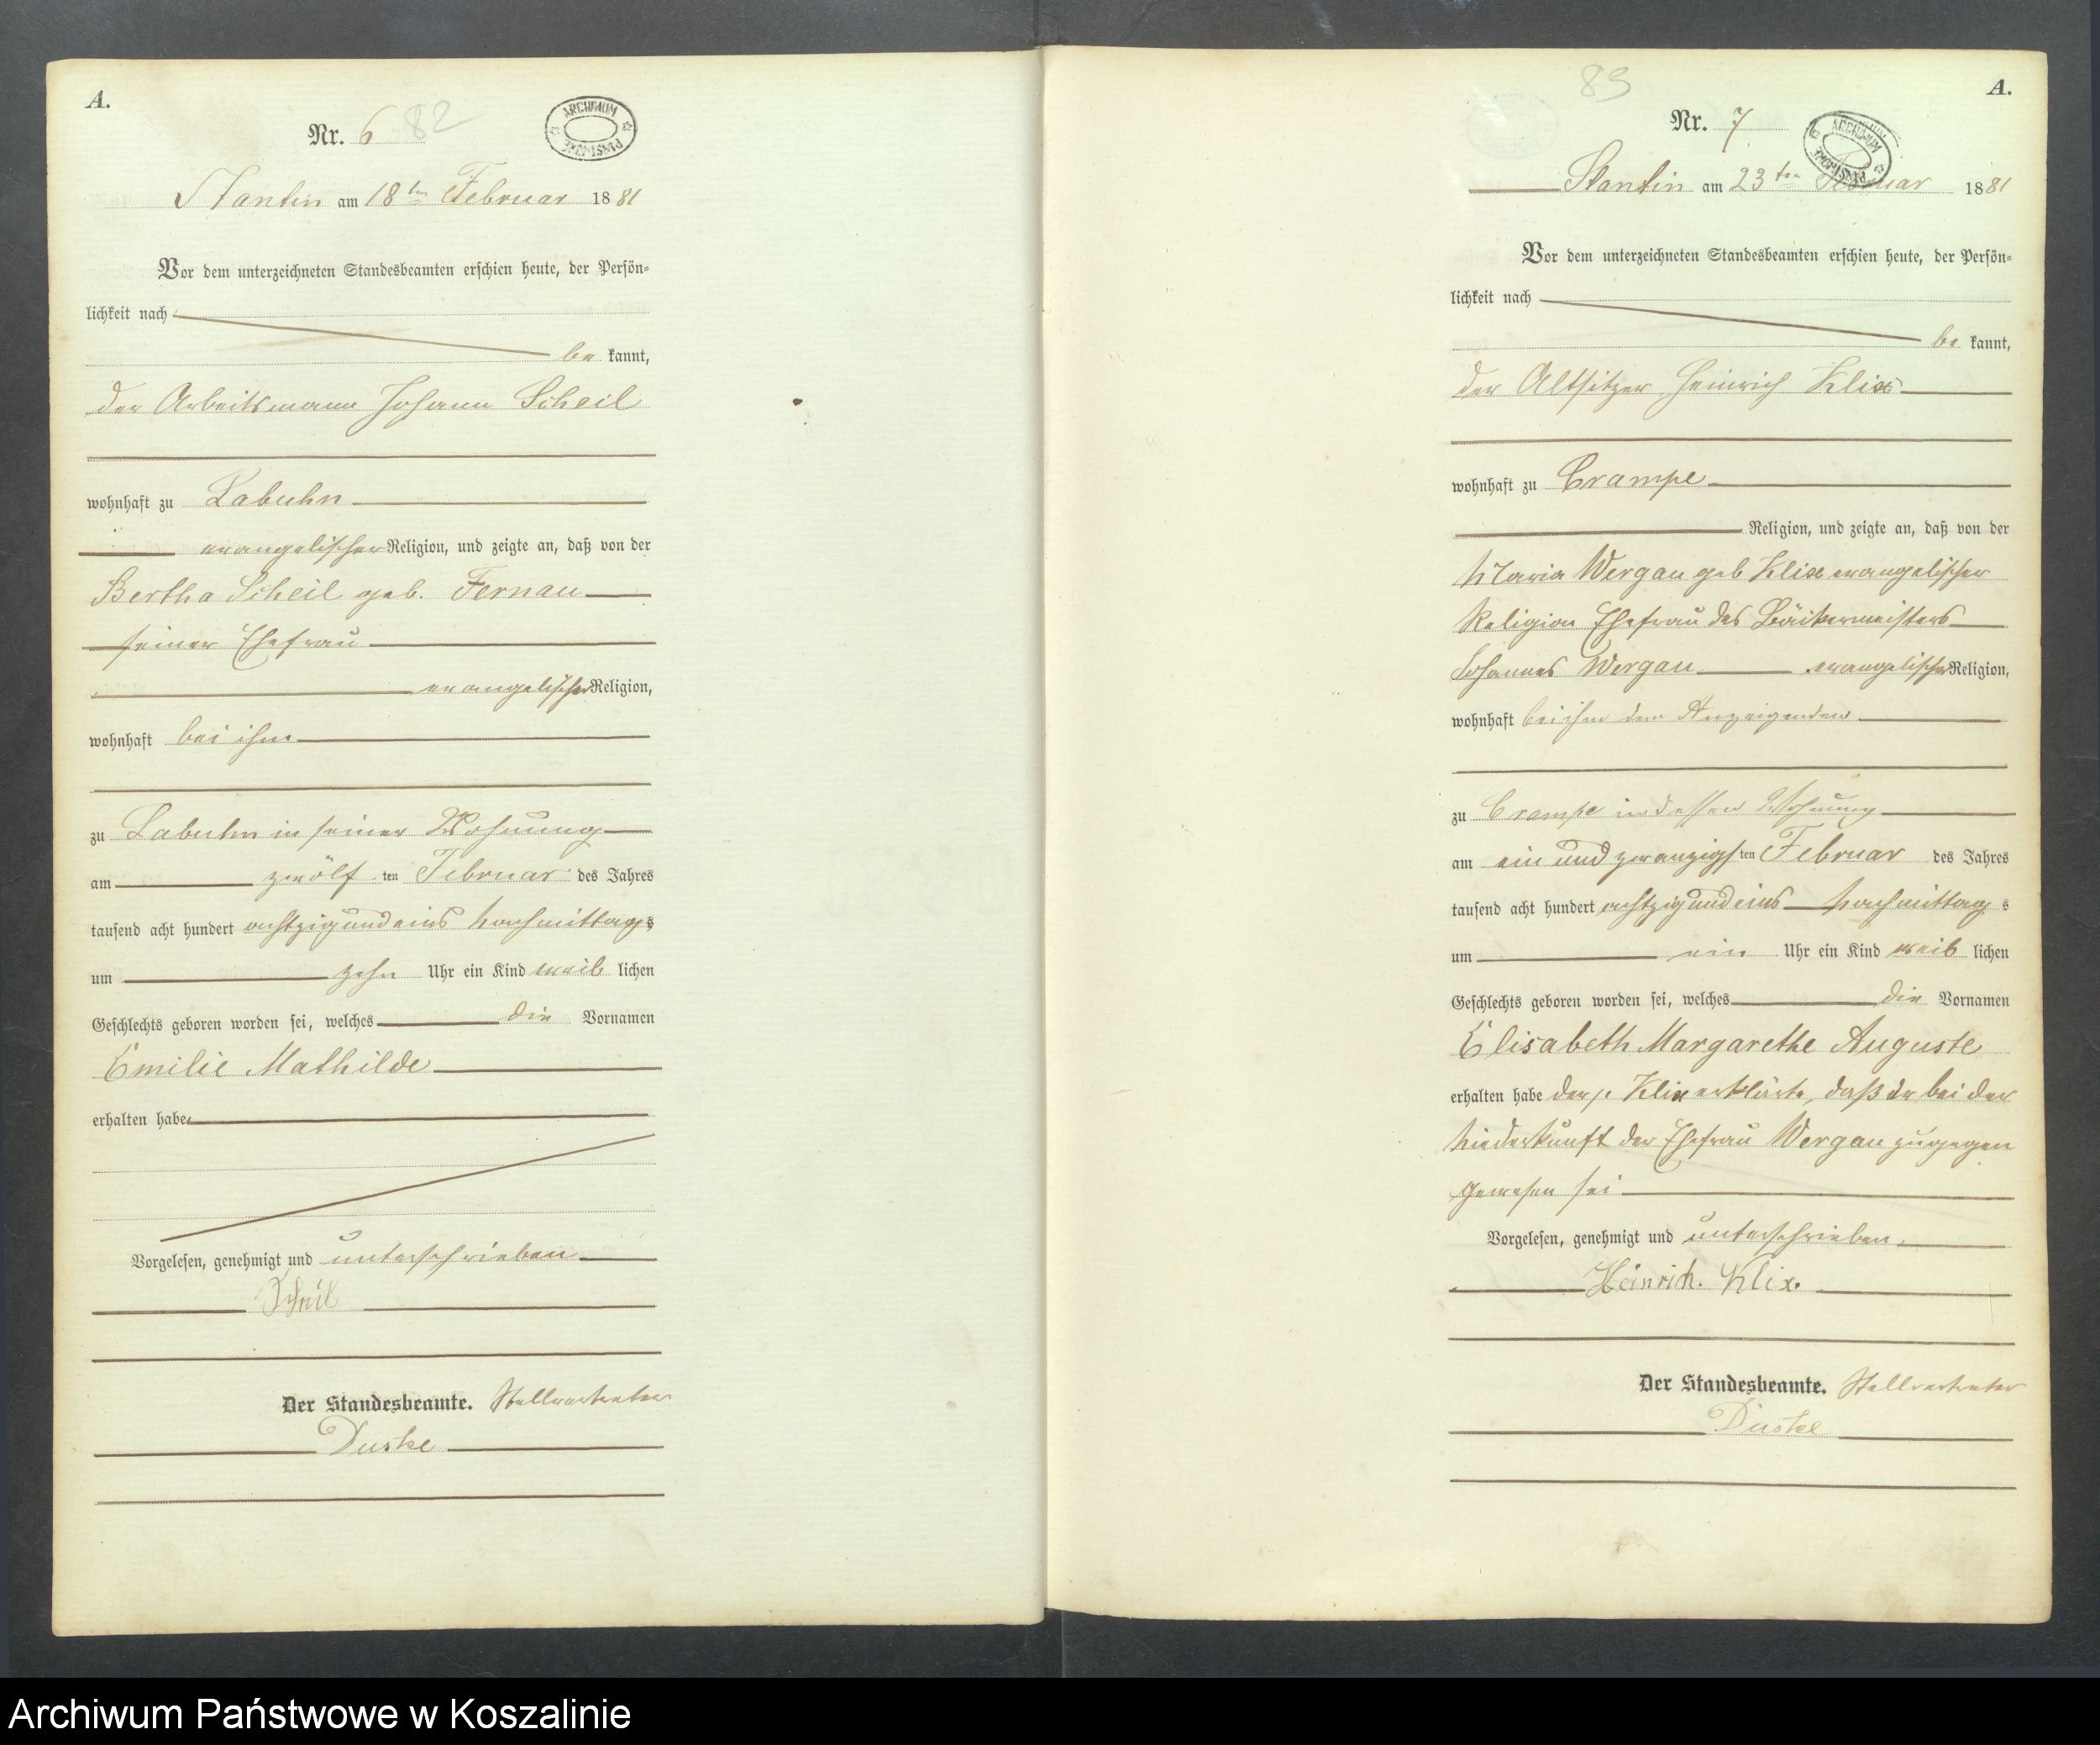 A.
Nr. 6 82
ARCHIWUM PAŃSTWOWE
Stantin am 18ten Februar 1881
Vor dem unterzeichneten Standesbeamten erschien heute, der Persön-
lichkeit nach
be kannt,
der Arbeitsmann Johann Scheil
wohnhaft zu Labuhn
evangelischer Religion, und zeigte an, daß von der
Bertha Scheil geb. Fernau
seiner Ehefrau
evangelischer Religion,
wohnhaft bei ihm
zu Labuhn in seiner Wohnung
am zwölf ten Februar des Jahres
tausend acht hundert achtzig und eins Nachmittags
um zehn Uhr ein Kind weib lichen
Geschlechts geboren worden sei, welches die Vornamen
Emilie Mathilde
erhalten habe
Vorgelesen, genehmigt und unterschrieben
Scheil
Der Standesbeamte. Stellvertreter
Duske
83
A.
Nr. 7
ARCHIWUM PAŃSTWOWE
Stantin am 23ten Februar 1881
Vor dem unterzeichneten Standesbeamten erschien heute, der Persön-
lichkeit nach
be kannt,
der Altsitzer Heinrich Klix
wohnhaft zu Crampe
Religion, und zeigte an, daß von der
Maria Wergau geb Klix evangelischer
Religion Ehefrau des Bäckermeisters
Johannes Wergau evangelischer Religion,
wohnhaft bei ihm dem Anzeigenden
zu Crampe in dessen Wohnung
am ein und zwanzigsten Februar des Jahres
tausend acht hundert achtzig und eins Nachmittag s
um ein Uhr ein Kind weib lichen
Geschlechts geboren worden sei, welches die Vornamen
Elisabeth Margarethe Auguste
erhalten habe der p. Klix erklärte, daß er bei der
Niederkunft der Ehefrau Wergau zugegen
gewesen sei
Vorgelesen, genehmigt und unterschrieben.
Heinrich. Klix.
Der Standesbeamte. Stellvertreter
Duske
Archiwum Państwowe w Koszalinie